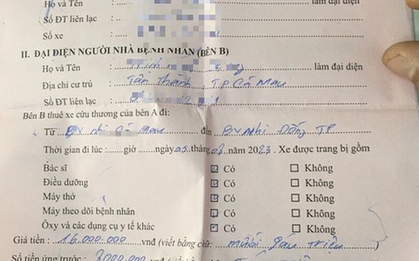 Họ và Tên làm đại diện
Số ĐT liên lạc
Số xe
II. ĐẠI DIỆN NGƯỜI NHÀ BỆNH NHÂN (BÊN B)
Họ và Tên làm đại diện
Địa chỉ cư trú Tân Thành, TP Cà Mau
Số ĐT liên lạc
Bên B thuê xe cứu thương của bên A đi:
Từ BV nhi Cà Mau đến BV Nhi Đồng TP
Thời gian đi lúc : giờ ngày 05 2023. Xe được trang bị gồm
Bác sĩ Có Không
Điều dưỡng Có Không
Máy thở Có Không
Máy theo dõi bệnh nhân Có Không
Ôxy và các dụng cụ y tế khác Có Không
Giá tiền : 16.000.000 vnđ (viết bằng chữ: mười sáu triệu
Số tiền ứng trước